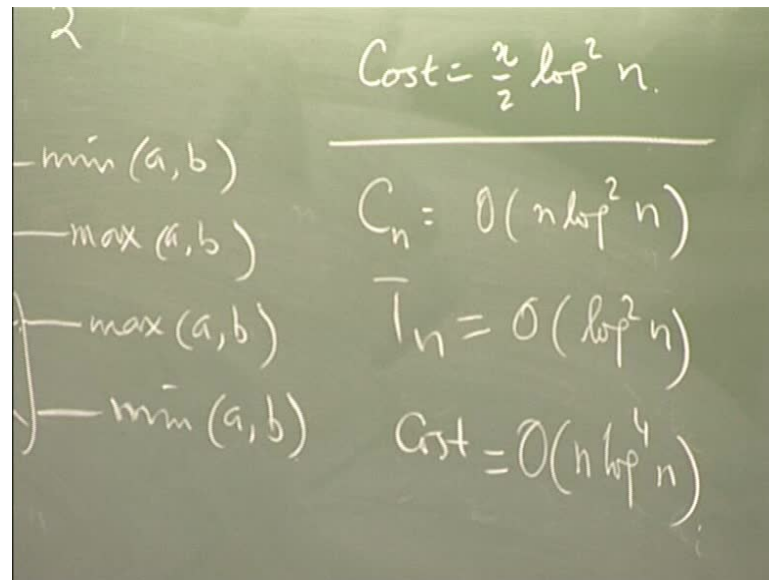 2
min (a, b)
max (a, b)
max (a, b)
min (a, b)
Cost = n/2 log² n.
Cₙ = O(n log² n)
Tₙ = O(log² n)
Cost = O(n log⁴ n)